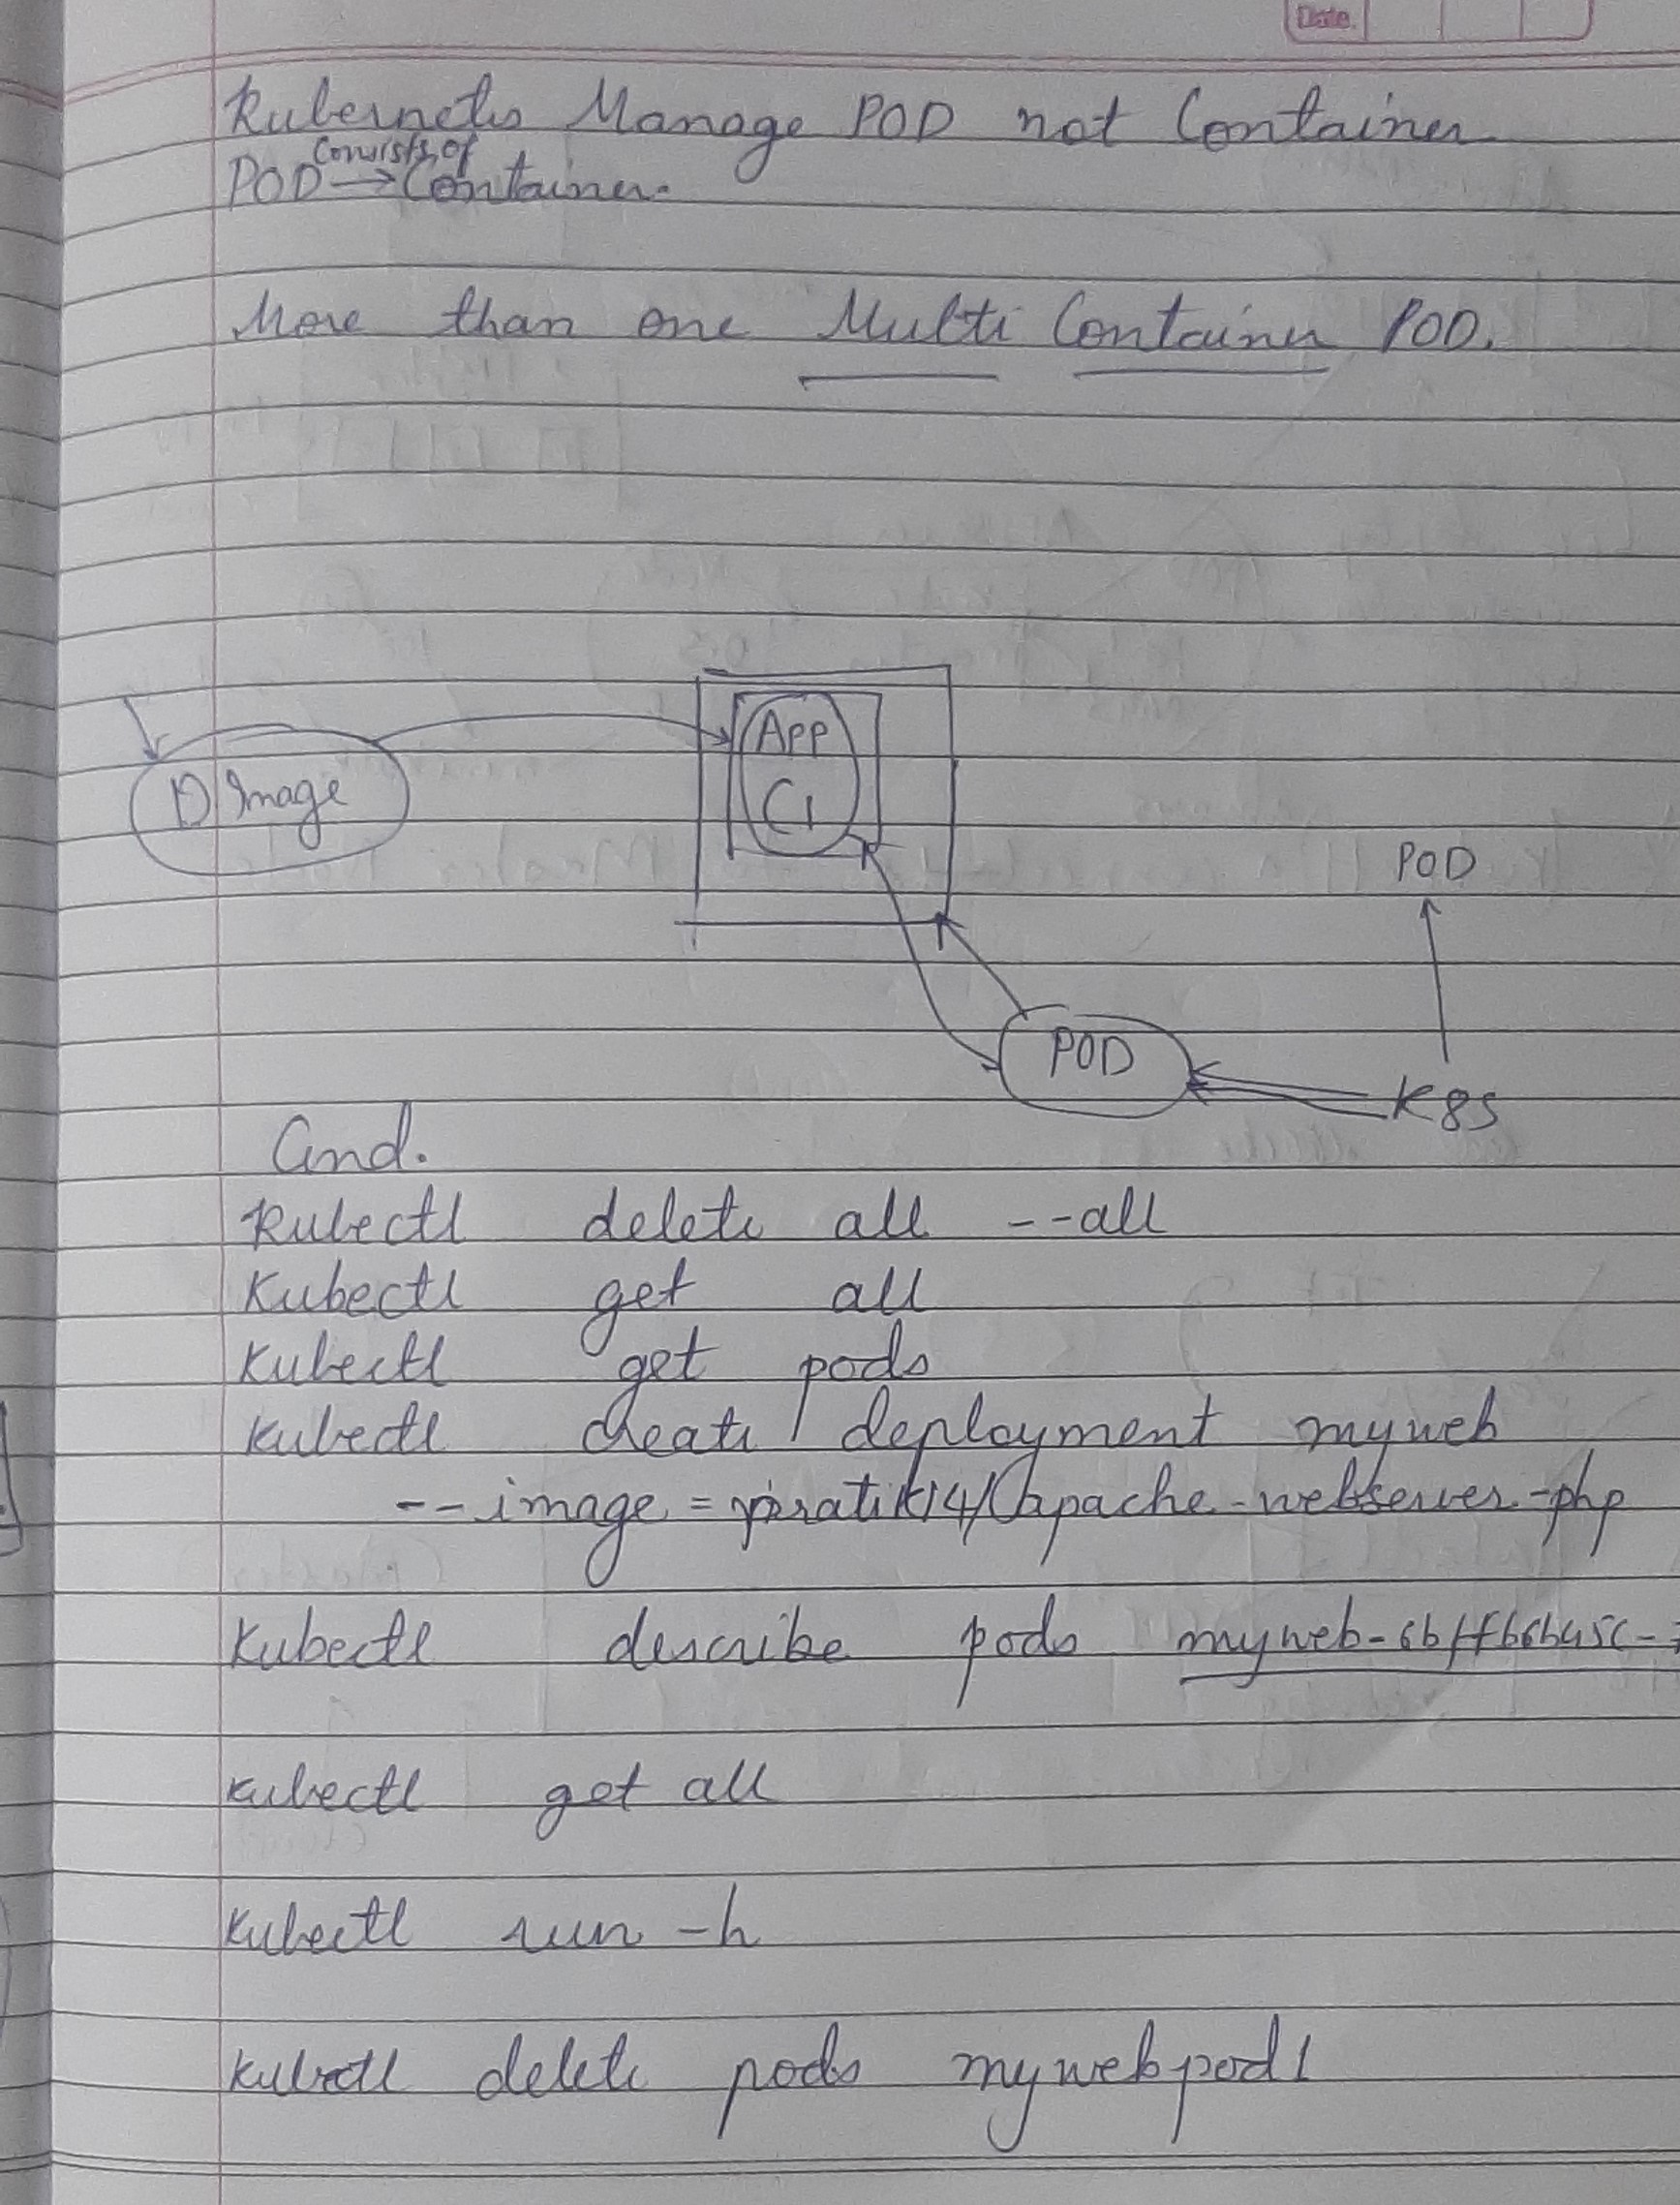 Date.
Kubernetes Manage POD not Container
consists of
POD → Container.
More than one Multi Container POD.
App
D Image
C1
POD
POD
K8S
Cmd.
Kubectl delete all --all
Kubectl get all
Kubectl get pods
Kubectl create deployment myweb
--image = piratik14/apache-webserver-php
Kubectl describe pods
Kubectl get all
Kubectl run -h
Kubectl delete pods mywebpod1